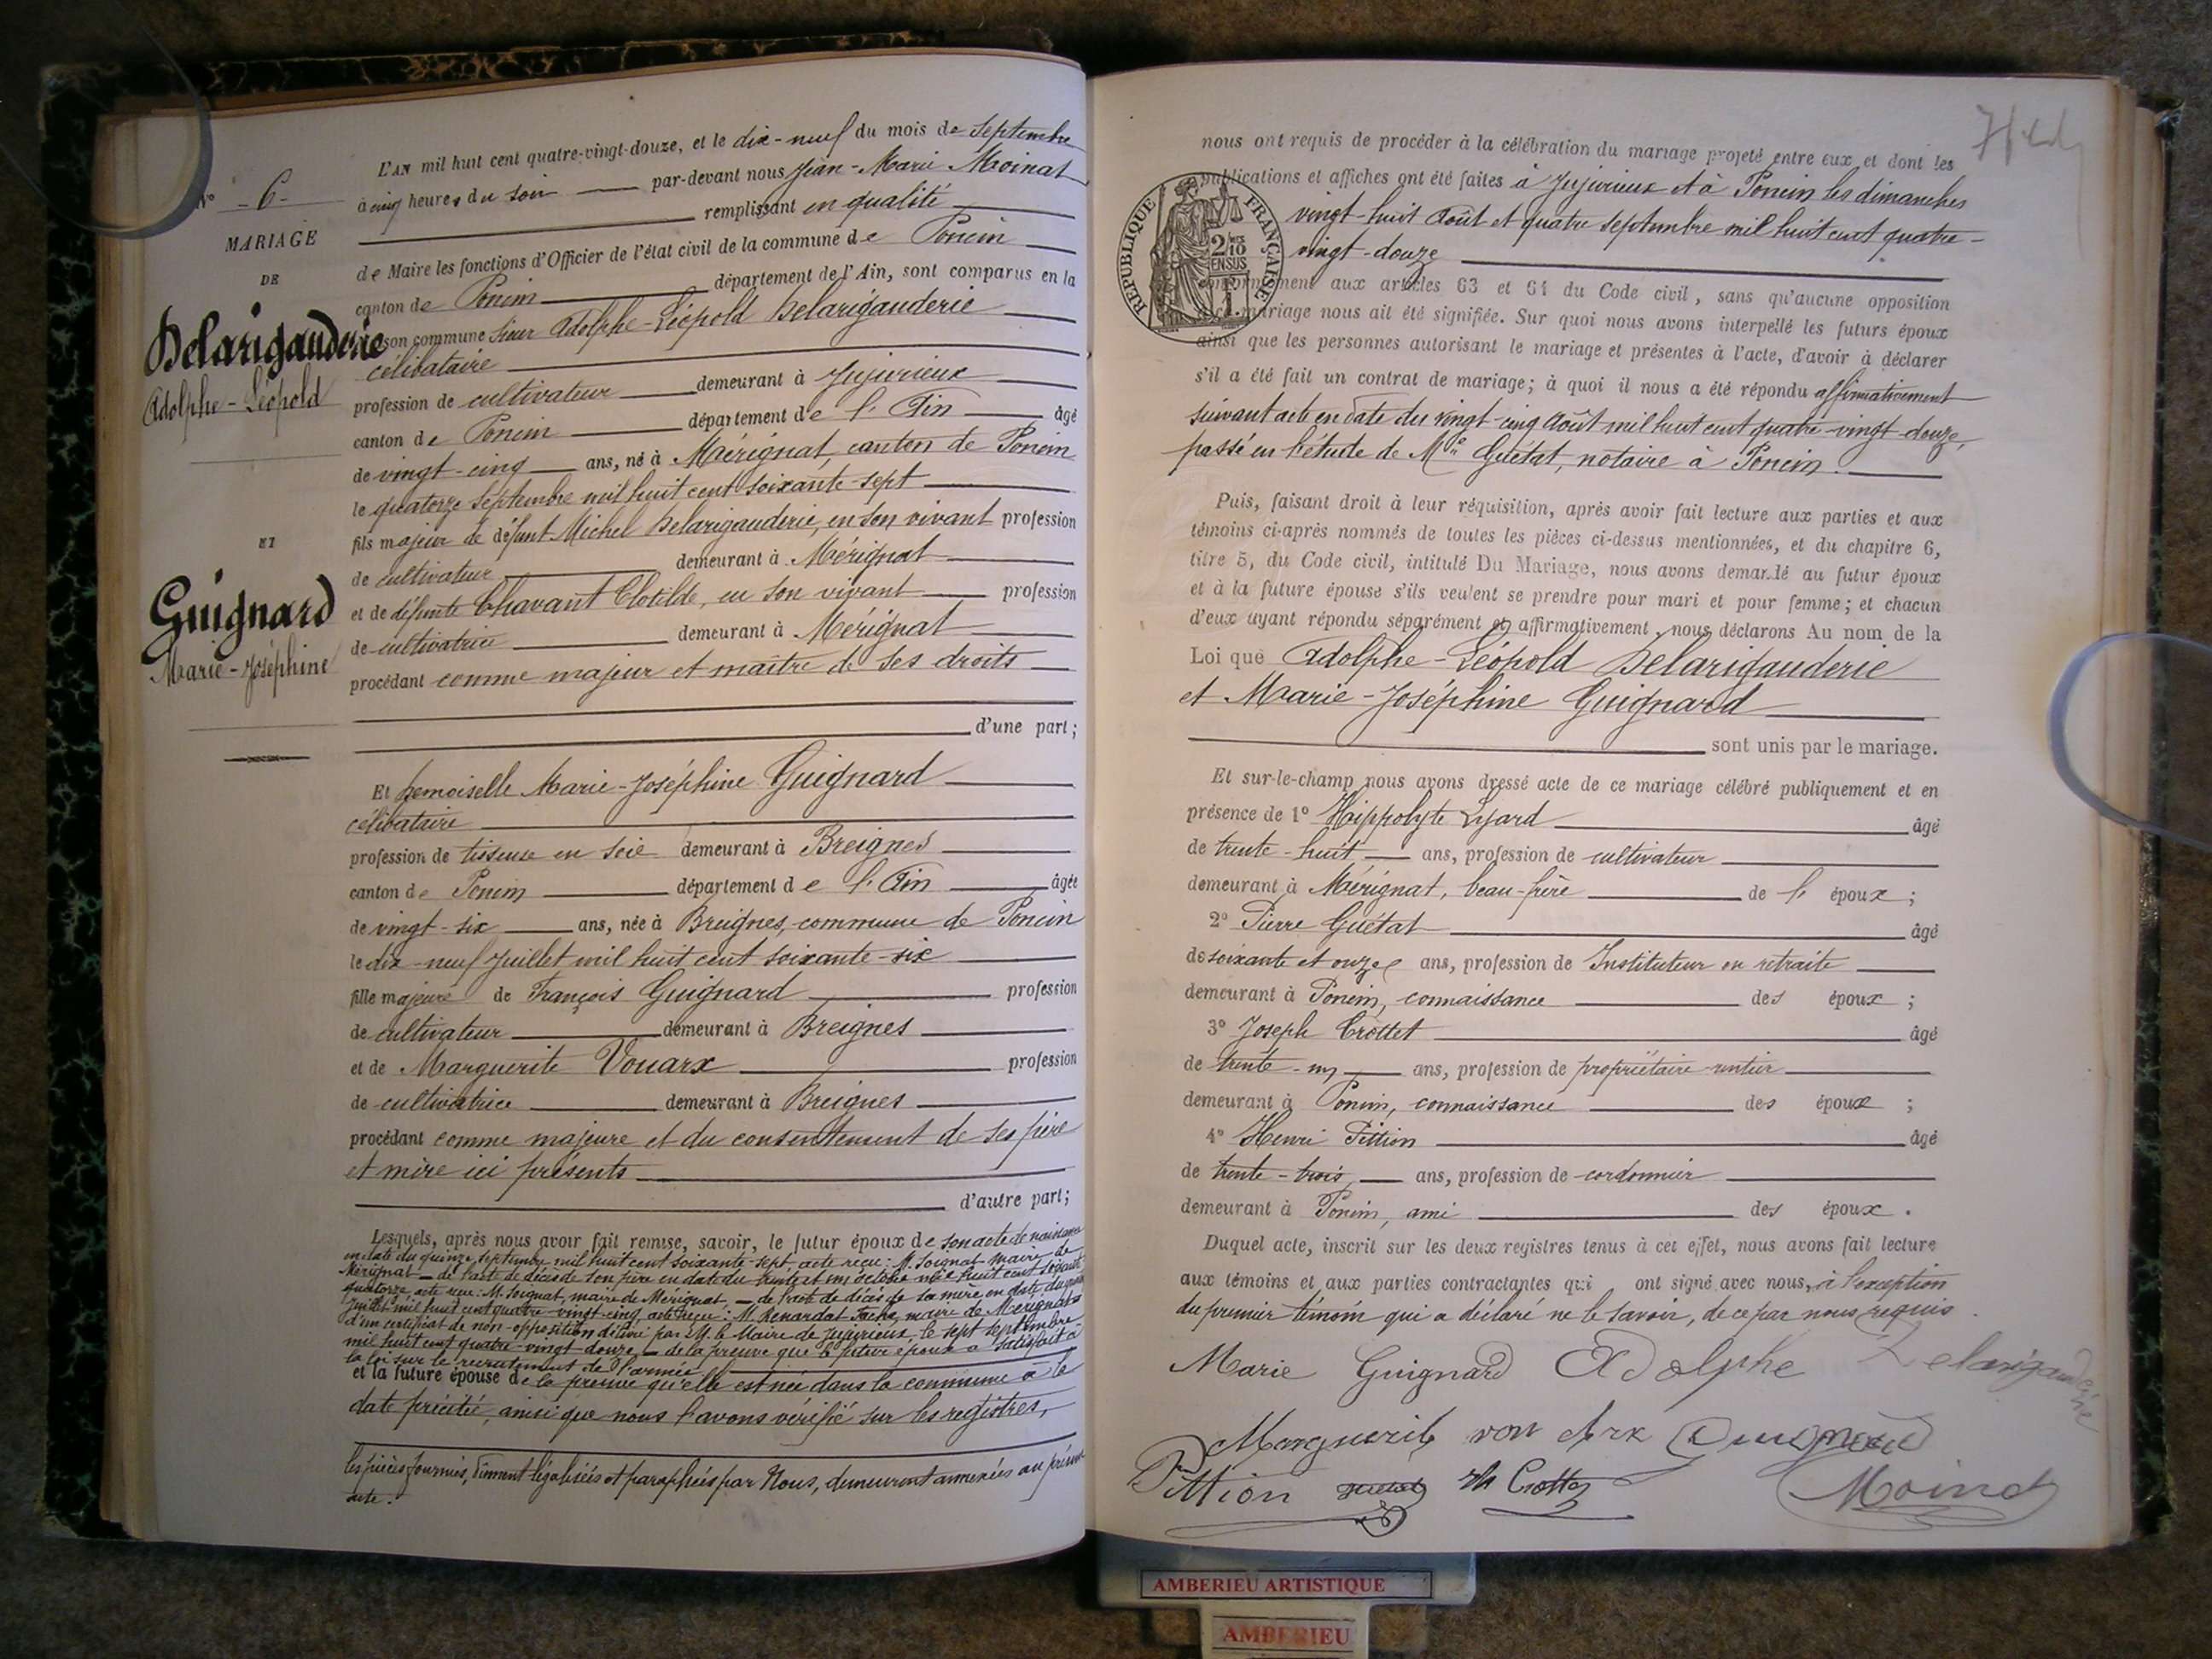 N° - 6 -
MARIAGE
DE
Delarigauderie
Adolphe-Léopold
ET
Guignard
Marie-Joséphine
L'AN mil huit cent quatre-vingt-douze, et le dix-neuf du mois de Septembre
à cinq heures du soir par-devant nous Jean-Marie Moinat
remplissant en qualité
de Maire les fonctions d'Officier de l'état civil de la commune de Poncin
canton de Poncin département de l'Ain, sont comparus en la
maison commune Sieur Adolphe-Léopold Delarigauderie
célibataire
profession de cultivateur demeurant à Jujurieux
canton de Poncin département de l'Ain âgé
de vingt-cinq ans, né à Mérignat, canton de Poncin
le quatorze Septembre mil huit cent soixante-sept
fils majeur de défunt Michel Delarigauderie, en son vivant profession
de cultivateur demeurant à Mérignat
et de défunte Chavant Clotilde, en son vivant profession
de cultivatrice demeurant à Mérignat
procédant comme majeur et maître de ses droits
d'une part;
Et Demoiselle Marie-Joséphine Guignard
célibataire
profession de tisseuse en soie demeurant à Breignes
canton de Poncin département de l'Ain âgée
de vingt-six ans, née à Breignes, commune de Poncin
le dix-neuf Juillet mil huit cent soixante-six
fille majeure de François Guignard profession
de cultivateur demeurant à Breignes
et de Marguerite Vouarx profession
de cultivatrice demeurant à Breignes
procédant comme majeure et du consentement de ses père
et mère ici présents
d'autre part;
Lesquels, après nous avoir fait remise, savoir, le futur époux de son acte de naissance
en date du quinze Septembre mil huit cent soixante-sept, acte reçu: M. Soignat maire de
Mérignat - de l'acte de décès de son père en date du trente et un octobre mil huit cent soixante
quatorze, acte reçu: M. Soignat, maire de Mérignat, - de l'acte de décès de sa mère en date du quinze
Juillet mil huit cent quatre-vingt-cinq, acte reçu: M. Renardat maire de Mérignat
d'un certificat de non-opposition délivré par M. le Maire de Jujurieux, le sept septembre
mil huit cent quatre-vingt-douze, - de la preuve que le futur époux a satisfait à
la loi sur le recrutement de l'armée
et la future épouse de la preuve qu'elle est née dans la commune à la
date précitée, ainsi que nous l'avons vérifié sur les registres,
les pièces fournies, dûment légalisées et paraphées par Nous, demeurent annexées au présent
acte.
nous ont requis de procéder à la célébration du mariage projeté entre eux, et dont les
publications et affiches ont été faites à Jujurieux et à Poncin les dimanches
vingt-huit Août et quatre septembre mil huit cent quatre-
vingt-douze
RÉPUBLIQUE FRANÇAISE
2/10 EN SUS
conformément aux articles 63 et 64 du Code civil, sans qu'aucune opposition
mariage nous ait été signifiée. Sur quoi nous avons interpellé les futurs époux
ainsi que les personnes autorisant le mariage et présentes à l'acte, d'avoir à déclarer
s'il a été fait un contrat de mariage; à quoi il nous a été répondu affirmativement
suivant acte en date du vingt-cinq Août mil huit cent quatre-vingt-douze,
passé en l'étude de Me Guétat, notaire à Poncin.
Puis, faisant droit à leur réquisition, après avoir fait lecture aux parties et aux
témoins ci-après nommés de toutes les pièces ci-dessus mentionnées, et du chapitre 6,
titre 5, du Code civil, intitulé Du Mariage, nous avons demandé au futur époux
et à la future épouse s'ils veulent se prendre pour mari et pour femme; et chacun
d'eux ayant répondu séparément et affirmativement, nous déclarons Au nom de la
Loi que Adolphe-Léopold Delarigauderie
et Marie-Joséphine Guignard
sont unis par le mariage.
Et sur-le-champ nous avons dressé acte de ce mariage célébré publiquement et en
présence de 1° Hippolyte Lyard âgé
de trente-huit ans, profession de cultivateur
demeurant à Mérignat, beau-frère de l'époux;
2° Pierre Guétat âgé
de soixante et onze ans, profession de Instituteur en retraite
demeurant à Poncin, connaissance des époux;
3° Joseph Crottet âgé
de trente-un ans, profession de propriétaire-rentier
demeurant à Poncin, connaissance des époux;
4° Henri Pittion âgé
de trente-trois ans, profession de cordonnier
demeurant à Poncin, ami des époux.
Duquel acte, inscrit sur les deux registres tenus à cet effet, nous avons fait lecture
aux témoins et aux parties contractantes qui ont signé avec nous, à l'exception
du premier témoin qui a déclaré ne le savoir, de ce par nous requis.
Marie Guignard Adolphe Delarigauderie
Marguerite von Arx Guignard
Pittion Guétat Crottet Moinat
AMBERIEU ARTISTIQUE
AMBERIEU